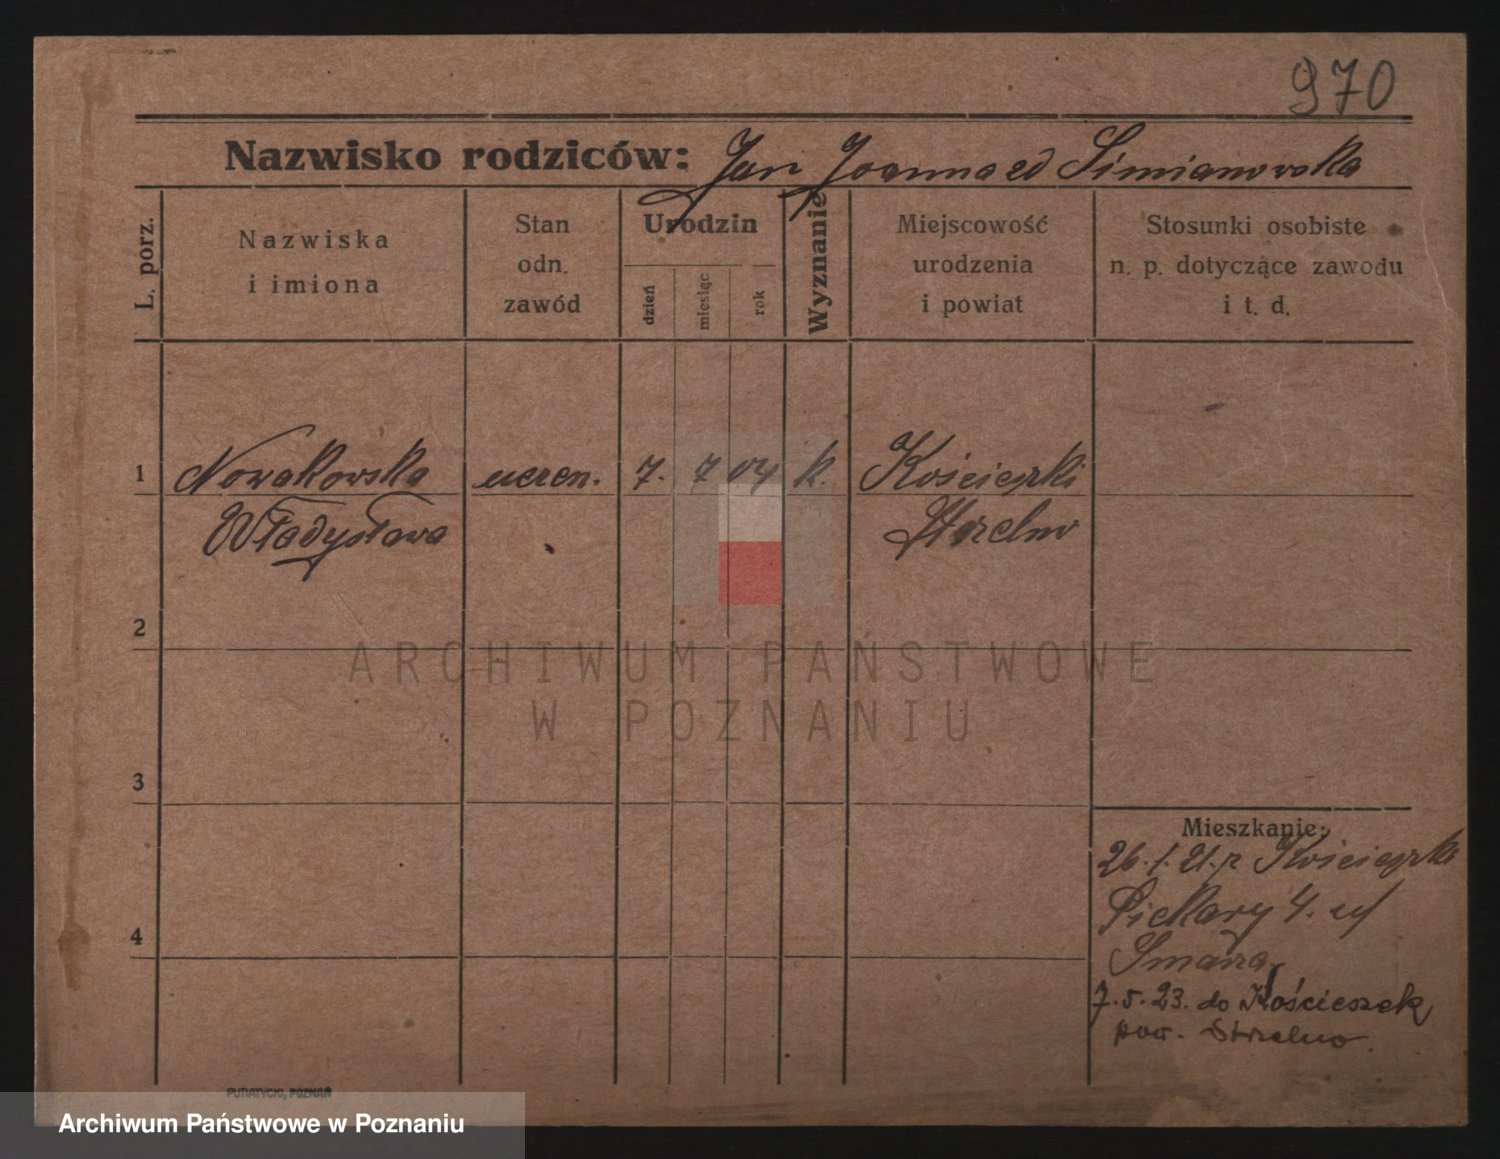 970
Nazwisko rodziców: Jan Joanna zd Simianowska
L. porz.
Nazwiska
i imiona
Stan
odn.
zawód
Urodzin
dzień
miesiąc
rok
Wyznanie
Miejscowość
urodzenia
i powiat
Stosunki osobiste
n. p. dotyczące zawodu
i t. d.
1 Nowakowska uczen. 7. 7 04 k. Kościeszki
Władysława Strzelno
2
3
4
Mieszkanie:
26.1.21. Kościeszki
Piekary 4.
7.5.23. do Kościeszek
pow. Strzelno
PUTIATYCKI, POZNAŃ
ARCHIWUM PAŃSTWOWE
W POZNANIU
Archiwum Państwowe w Poznaniu